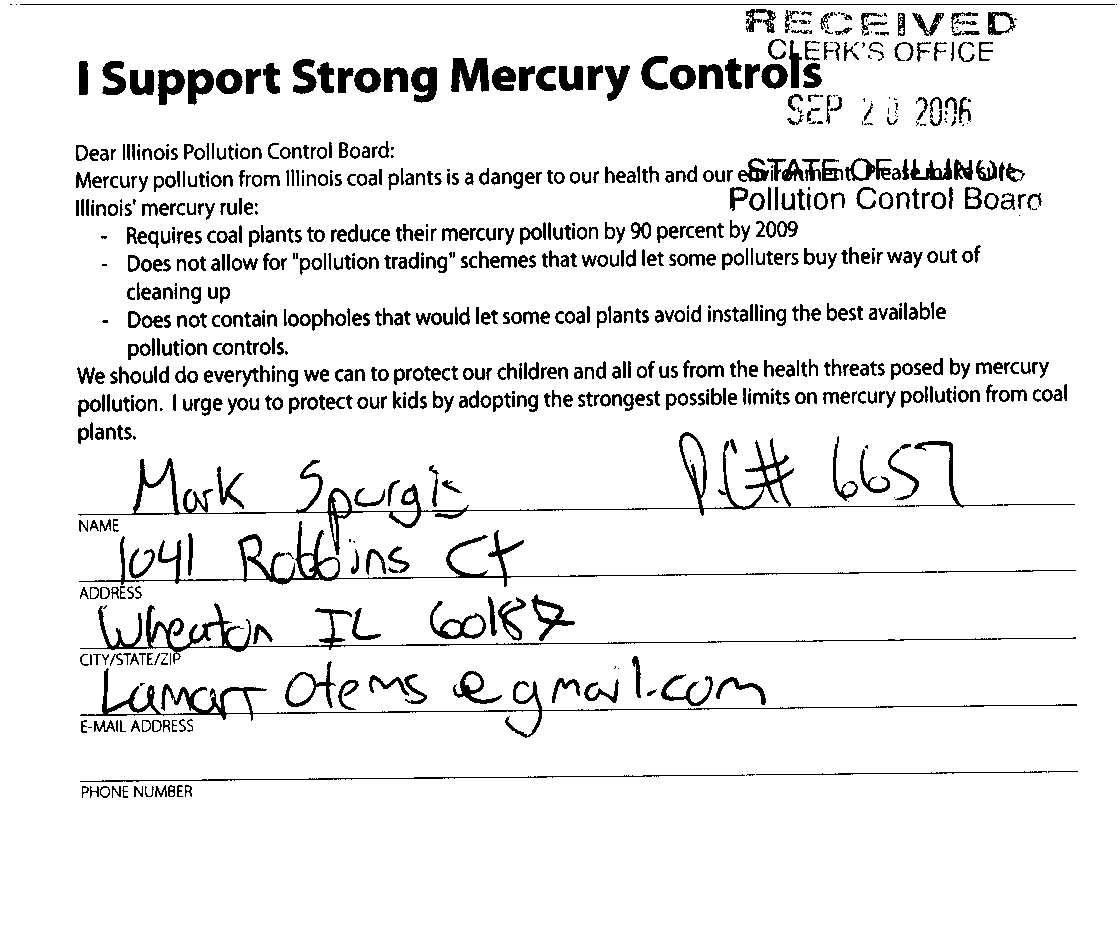 RECEIVED
CLERK'S OFFICE
I Support Strong Mercury Controls
SEP 20 2006
Dear Illinois Pollution Control Board:
Mercury pollution from Illinois coal plants is a danger to our health and our environment. Please make sure
STATE OF ILLINOIS
Illinois' mercury rule:
Pollution Control Board
- Requires coal plants to reduce their mercury pollution by 90 percent by 2009
- Does not allow for "pollution trading" schemes that would let some polluters buy their way out of
cleaning up
- Does not contain loopholes that would let some coal plants avoid installing the best available
pollution controls.
We should do everything we can to protect our children and all of us from the health threats posed by mercury
pollution. I urge you to protect our kids by adopting the strongest possible limits on mercury pollution from coal
plants.
Mark Spurgis P.C# 6657
NAME
1041 Robbins Ct
ADDRESS
Wheaton IL 60187
CITY/STATE/ZIP
Lamarr Otems @gmail.com
E-MAIL ADDRESS
PHONE NUMBER